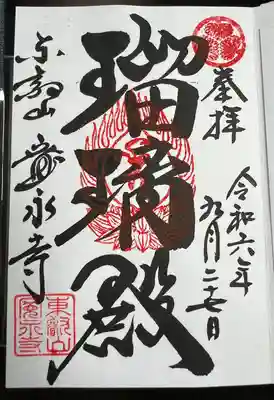 奉拝
令和六年
九月二十七日
瑠璃殿
東叡山
寛永寺
東叡山
寛永寺